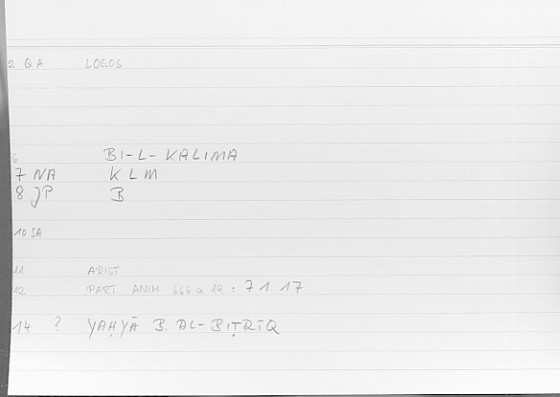 2 QA LOGOS
6 BI-L-KALIMA
7 NA KLM
8 JP B
10 SA
11 ARIST
12 PART ANIM 666 a 19 : 71.17
14 ? YAḤYĀ B. AL-BIṬRĪQ